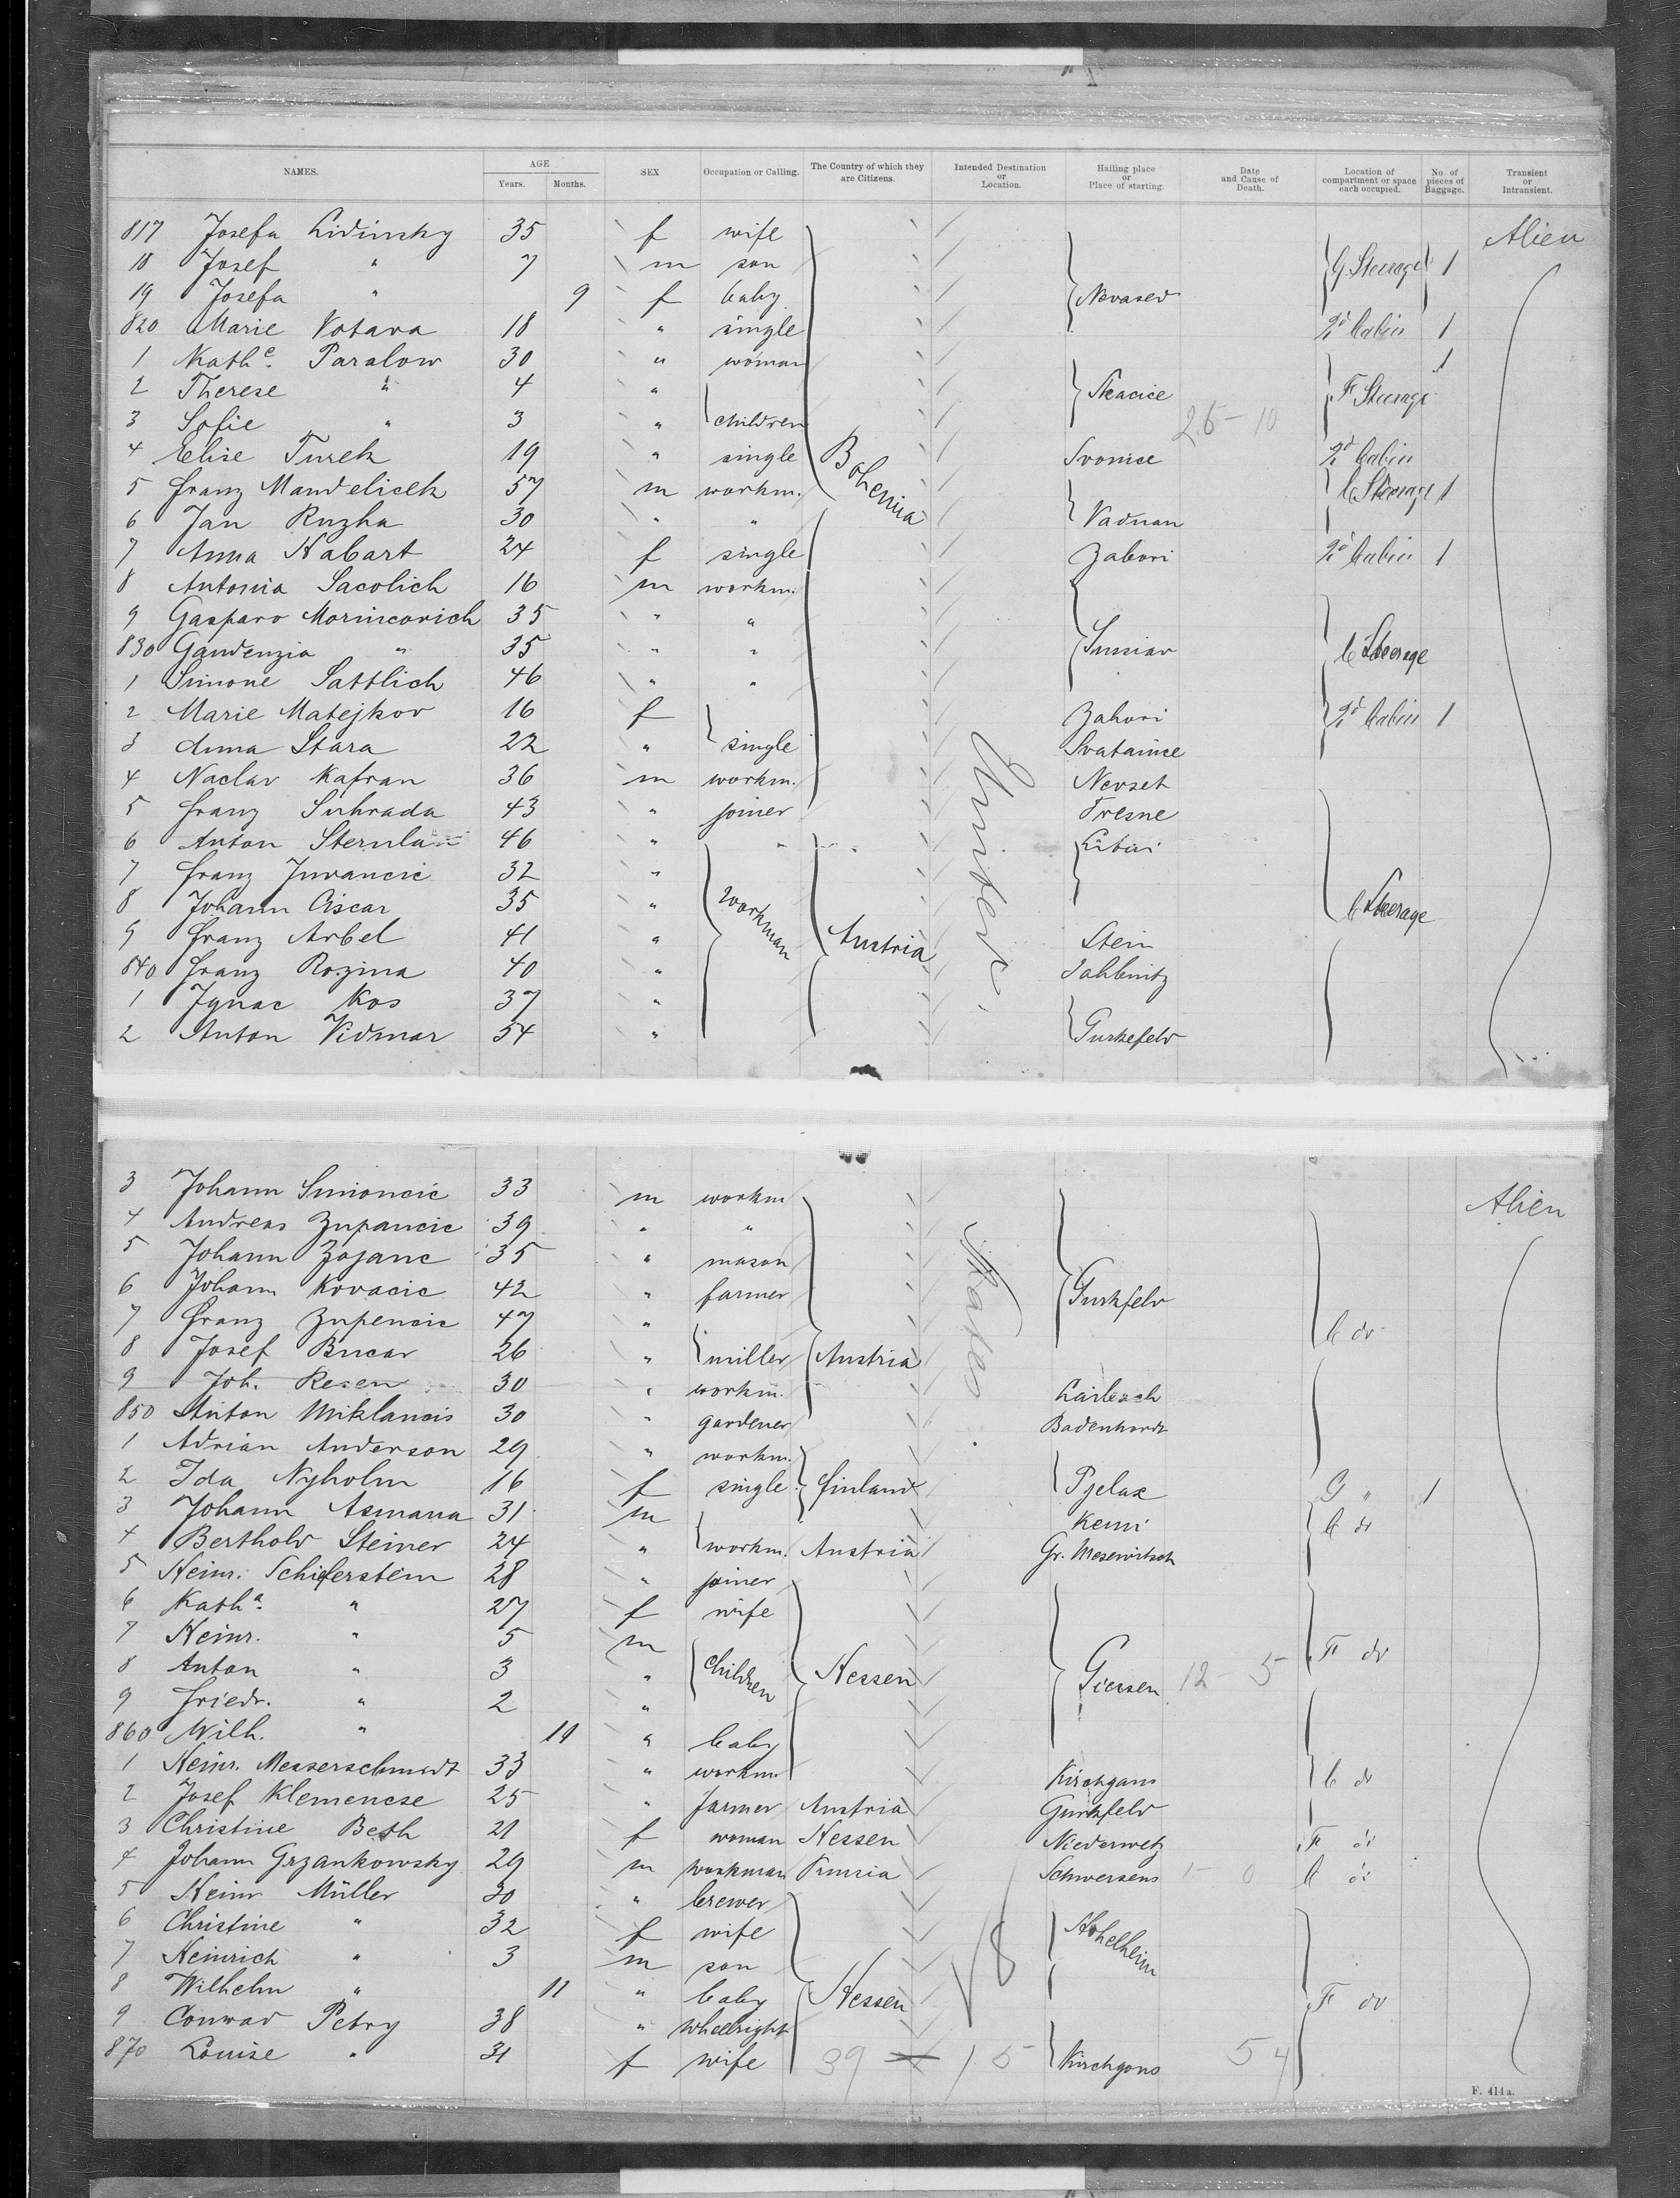 NAMES. AGE Years. Months. SEX Occupation or Calling. The Country of which they are Citizens. Intended Destination or Location. Hailing place or Place of starting. Date and Cause of Death. Location of compartment or space each occupied. No. of pieces of Baggage. Transient or Intransient.
817 Josefa Lidinsky 35 f wife Alien
18 Josef " 7 m son G. Steerage 1
19 Josefa " 9 f baby Novased
820 Marie Votava 18 " single 2d Cabin 1
1 Kathe. Paralow 30 " woman 1
2 Therese " 4 " Skacice F Steerage
3 Sofie " 3 " children 26 - 10
4 Elise Turek 19 " single Bohemia Svonice 2d Cabin
5 Franz Mandelicek 57 m workm. C Steerage 1
6 Jan Ruzha 30 " " Vadnan
7 Anna Habart 24 f single Zabori 2d Cabin 1
8 Antonia Sacolich 16 m workm.
9 Gasparo Morincovich 35 " "
830 Gaudenzia " 35 " " Sumiar C Steerage
1 Simone Sattlich 46 " "
2 Marie Matejkov 16 f Zahori 2d Cabin 1
3 Anna Stara 22 " single Svatanice
4 Naclav Kafran 36 m workm. United Nevset
5 Franz Suhrada 43 " joiner Tresne
6 Anton Sternla 46 " Litai
7 Franz Juvancic 32 "
8 Johann Ciscar 35 " workman C Steerage
9 Franz Arbel 41 " Austria Stein
840 Franz Rozina 40 " Jahlenitz
1 Ignac Kos 37 "
2 Anton Vidmar 54 " Gurkefeld
3 Johann Simoncic 33 m workm Alien
4 Andreas Zupancic 39 " "
5 Johann Zojanc 35 " mason States
6 Johann Kovacic 42 " farmer Gurkfeld
7 Franz Zupencic 47 " C do
8 Josef Bucar 26 " miller Austria
9 Joh. Resen 30 " workm. Lairbach
850 Anton Miklancis 30 " gardener Badenhardt
1 Adrian Anderson 29 " workm.
2 Ida Nyholm 16 f single Finland Pjelax G " 1
3 Johann Asmana 31 m Kemi C do
4 Berthold Steiner 24 " workm. Austria Gr. Mesewitsch
5 Heinr. Schiferstein 28 " joiner
6 Katha. " 27 f wife
7 Heinr. " 5 m F do
8 Anton " 3 " children Hessen Giessen 12 - 5
9 Friedr. " 2 "
860 Wilh. " 10 " baby
1 Heinr. Messerschmidt 33 " workm. Kirchgans C do
2 Josef Klemencse 25 " farmer Austria Gurkfeld
3 Christine Besh 21 f woman Hessen Niederwetz F do
4 Johann Grzankowsky 29 m workman Prussia Schwersens - 0 C do
5 Heinr Müller 30 " brewer
6 Christine " 32 f wife Hohelheim
7 Heinrich " 3 m son 18
8 Wilhelm " 11 " baby Hessen F do
9 Conrad Petry 38 " wheelright
870 Louise " 31 f wife 39 15 Kirchgons 54
F. 414a.